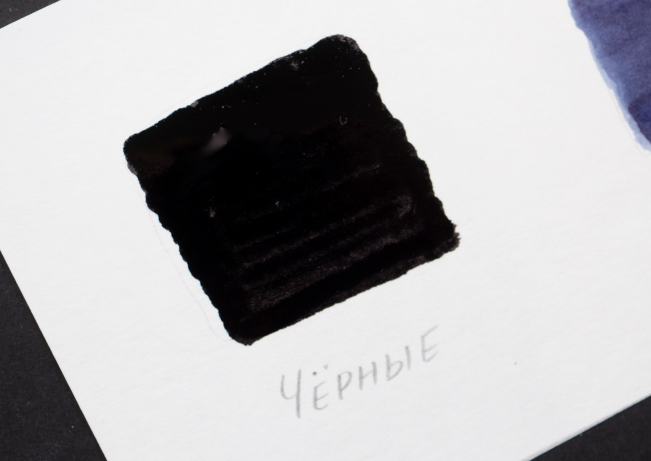 ЧЁРНЫЕ